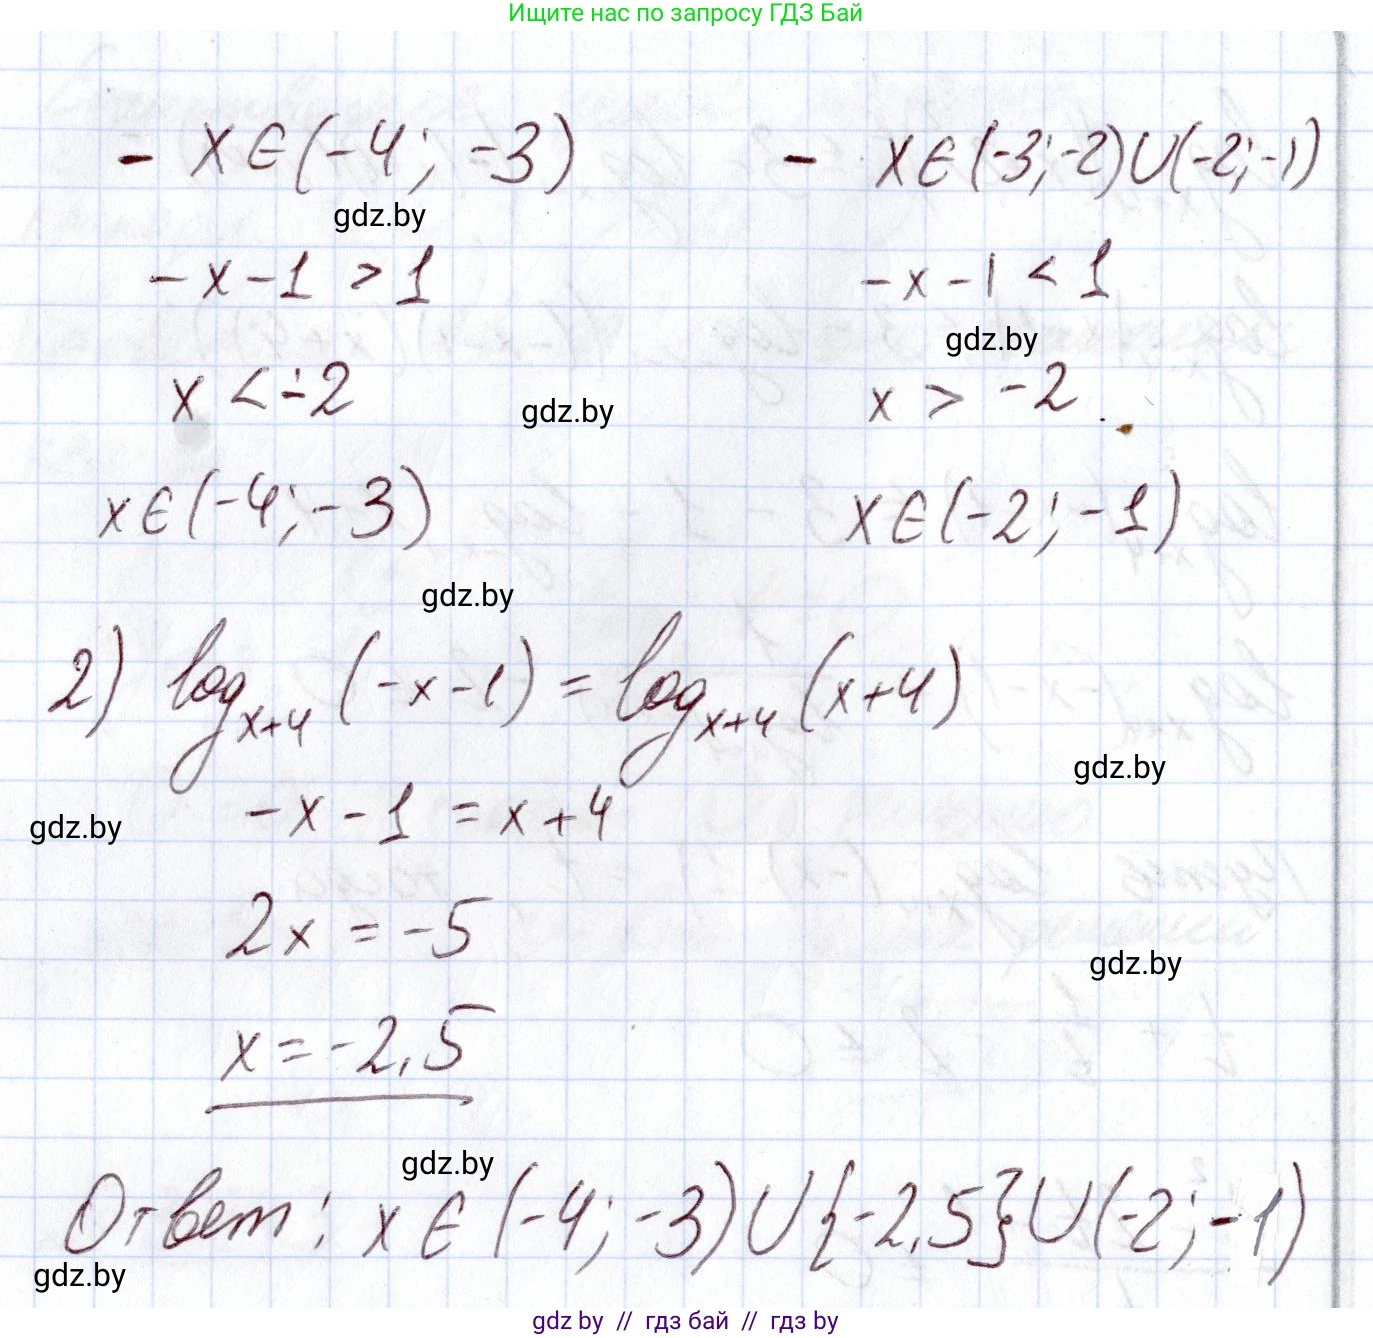 Ищите нас по запросу ГДЗ Бай
- x ∈ (-4; -3) - x ∈ (-3; -2) ∪ (-2; -1)
gdz.by
-x - 1 > 1 -x - 1 < 1
gdz.by
x < -2 x > -2
gdz.by
x ∈ (-4; -3) x ∈ (-2; -1)
gdz.by
2) log_{x+4} (-x-1) = log_{x+4} (x+4)
gdz.by
-x - 1 = x + 4
gdz.by
2x = -5
gdz.by
x = -2,5
gdz.by
Ответ: x ∈ (-4; -3) ∪ {-2,5} ∪ (-2; -1)
gdz.by
gdz by // гдз бай // гдз by